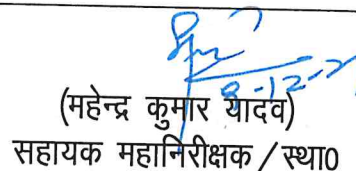 (महेन्द्र कुमार यादव)
सहायक महानिरीक्षक / स्था0